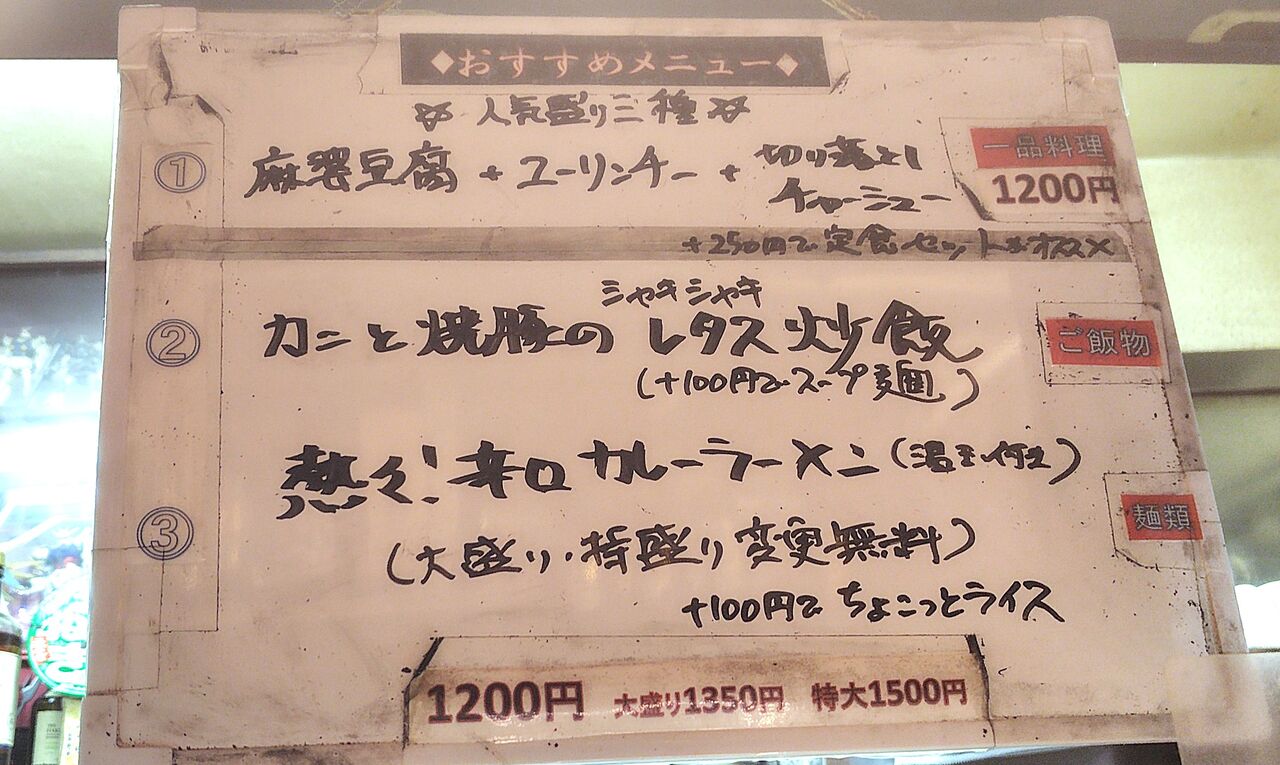 ◆おすすめメニュー◆
☆人気盛り三種☆
① 麻婆豆腐+ユーリンチー+切り落とし
チャーシュー
一品料理
1200円
+250円で定食セットがオススメ
シャキシャキ
② カニと焼豚のレタス炒飯
ご飯物
(+100円でスープ麺)
熱々!辛口カレーラーメン(温玉付き)
③
麺類
(大盛り・特盛り変更無料)
+100円でちょこっとライス
1200円 大盛り1350円 特大1500円